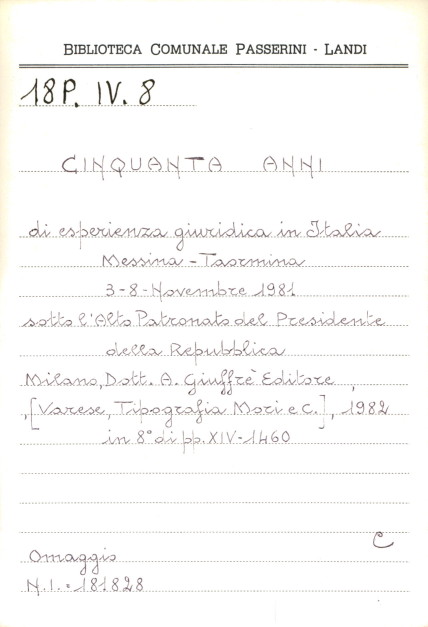 BIBLIOTECA COMUNALE PASSERINI - LANDI
18P. IV. 8
CINQUANTA ANNI
di esperienza giuridica in Italia
Messina - Taormina
3-8-Novembre 1981
sotto l'Alto Patronato del Presidente
della Repubblica
Milano, Dott. A. Giuffrè Editore,
,[Varese, Tipografia Mori e C.], 1982
in 8° di pp. XIV-1460
C
Omaggio
N.I. = 181828